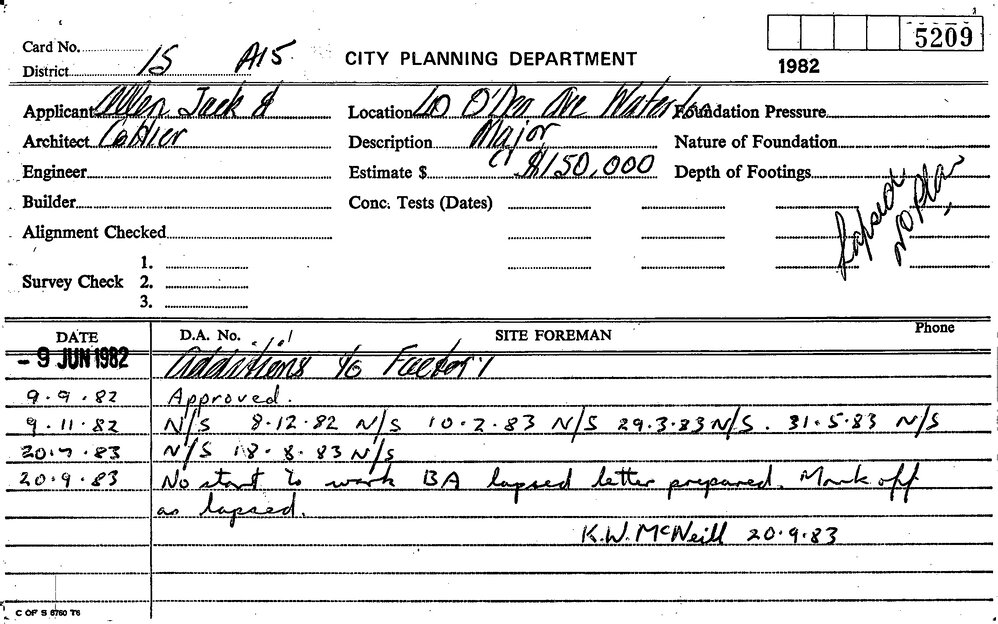 Card No.
District 15 A15
CITY PLANNING DEPARTMENT
5209
1982
Applicant Allen Jack &
Location 40 O'Dea Ave Waterloo
Foundation Pressure
Architect Cottier
Description Major
Nature of Foundation
Engineer
Estimate $ $150,000
Depth of Footings
Builder
Conc. Tests (Dates)
Lapsed
No Plan
Alignment Checked
1.
Survey Check 2.
3.
DATE D.A. No. SITE FOREMAN Phone
- 9 JUN 1982 Additions to Factory
9.9.82 Approved.
9.11.82 N/S 8.12.82 N/S 10.2.83 N/S 29.3.83 N/S. 31.5.83 N/S
20.7.83 N/S 18.8.83 N/S
20.9.83 No start to work BA lapsed letter prepared. Mark off
as lapsed.
K.W. McNeill 20.9.83
C OF S 6760 T6